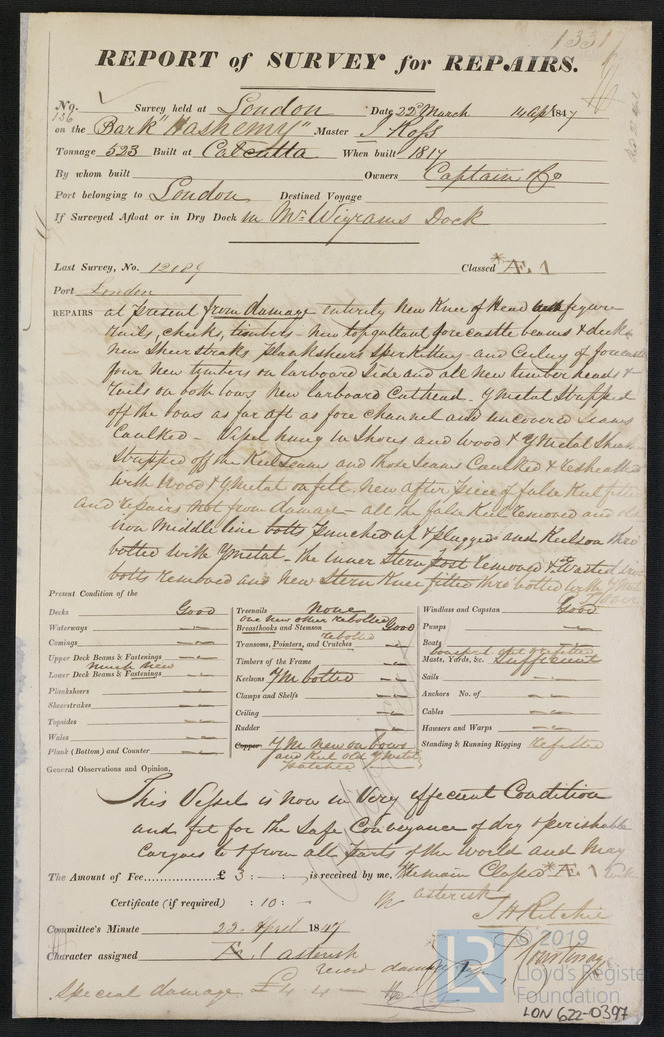 1331
REPORT of SURVEY for REPAIRS.
No. 136 Survey held at London Date 22d March 14 Apl 1847
on the Bark "Hashemy" Master J Ross
Tonnage 523 Built at Calcutta When built 1817
By whom built Owners Captain & Co
Port belonging to London Destined Voyage
If Surveyed Afloat or in Dry Dock in Mr. Wigrams Dock
Last Survey, No. 12189 Classed *Æ 1
Port London
REPAIRS at present from damage entirely new Knee of Head figure
rails, cheeks, timbers - new topgallant forecastle beams & deck
new Sheerstrakes Planksheers Spirketting - and Ceiling of forecastle
four new timbers on larboard side and all new timberheads &
rails on both bows new larboard Cathead - Y Metal Stripped
off the bows as far aft as fore channel and uncovered seams
Caulked - Vessel hung in Shores and wood & Y Metal Sheathing
Stripped off the Keel seams and those seams Caulked & resheathed
with Wood & Y Metal on felt, new after piece of false Keel fitted
and repairs not from damage - all the false Keel removed and old
iron Middle line bolts Punched up & plugged and Keelson thro
bolted with Y Metal - the inner Stern Post removed & Wasted iron
bolts removed and new Stern Knee fitted thro' bolted with Y Metal
Present Condition of the
Decks Good
Waterways
Comings
Upper Deck Beams & Fastenings
much new
Lower Deck Beams & Fastenings
Planksheers
Sheerstrakes
Topsides
Wales
Plank (Bottom) and Counter
Treenails None
one new other rebolted
Breasthooks and Stemson Good
rebolted
Transoms, Pointers, and Crutches
Timbers of the Frame
Keelsons Y M bolted
Clamps and Shelfs
Ceiling
Rudder
Copper Y M new on bows
and Keel old Y Metal
patched
Windlass and Capstan Good
Pumps
Boats
Masts, Yards, &c. Sufficient
Sails
Anchors No. of
Cables
Hawsers and Warps
Standing & Running Rigging refitted
General Observations and Opinion,
This Vessel is now in Very efficient Condition
and fit for the Safe Conveyance of dry & perishable
Cargoes to & from all parts of the World and May
The Amount of Fee £ 3 : - : - is received by me, Remain Classed *Æ 1 with
asterisk
Certificate (if required) : 10 : -
J H Ritchie
Committee's Minute 23 April 1847
Character assigned Æ 1 asterisk
record damage
J Courtenay
Special damage £4 4 -
LR
© 2019
Lloyd's Register
Foundation
LON 622-0397